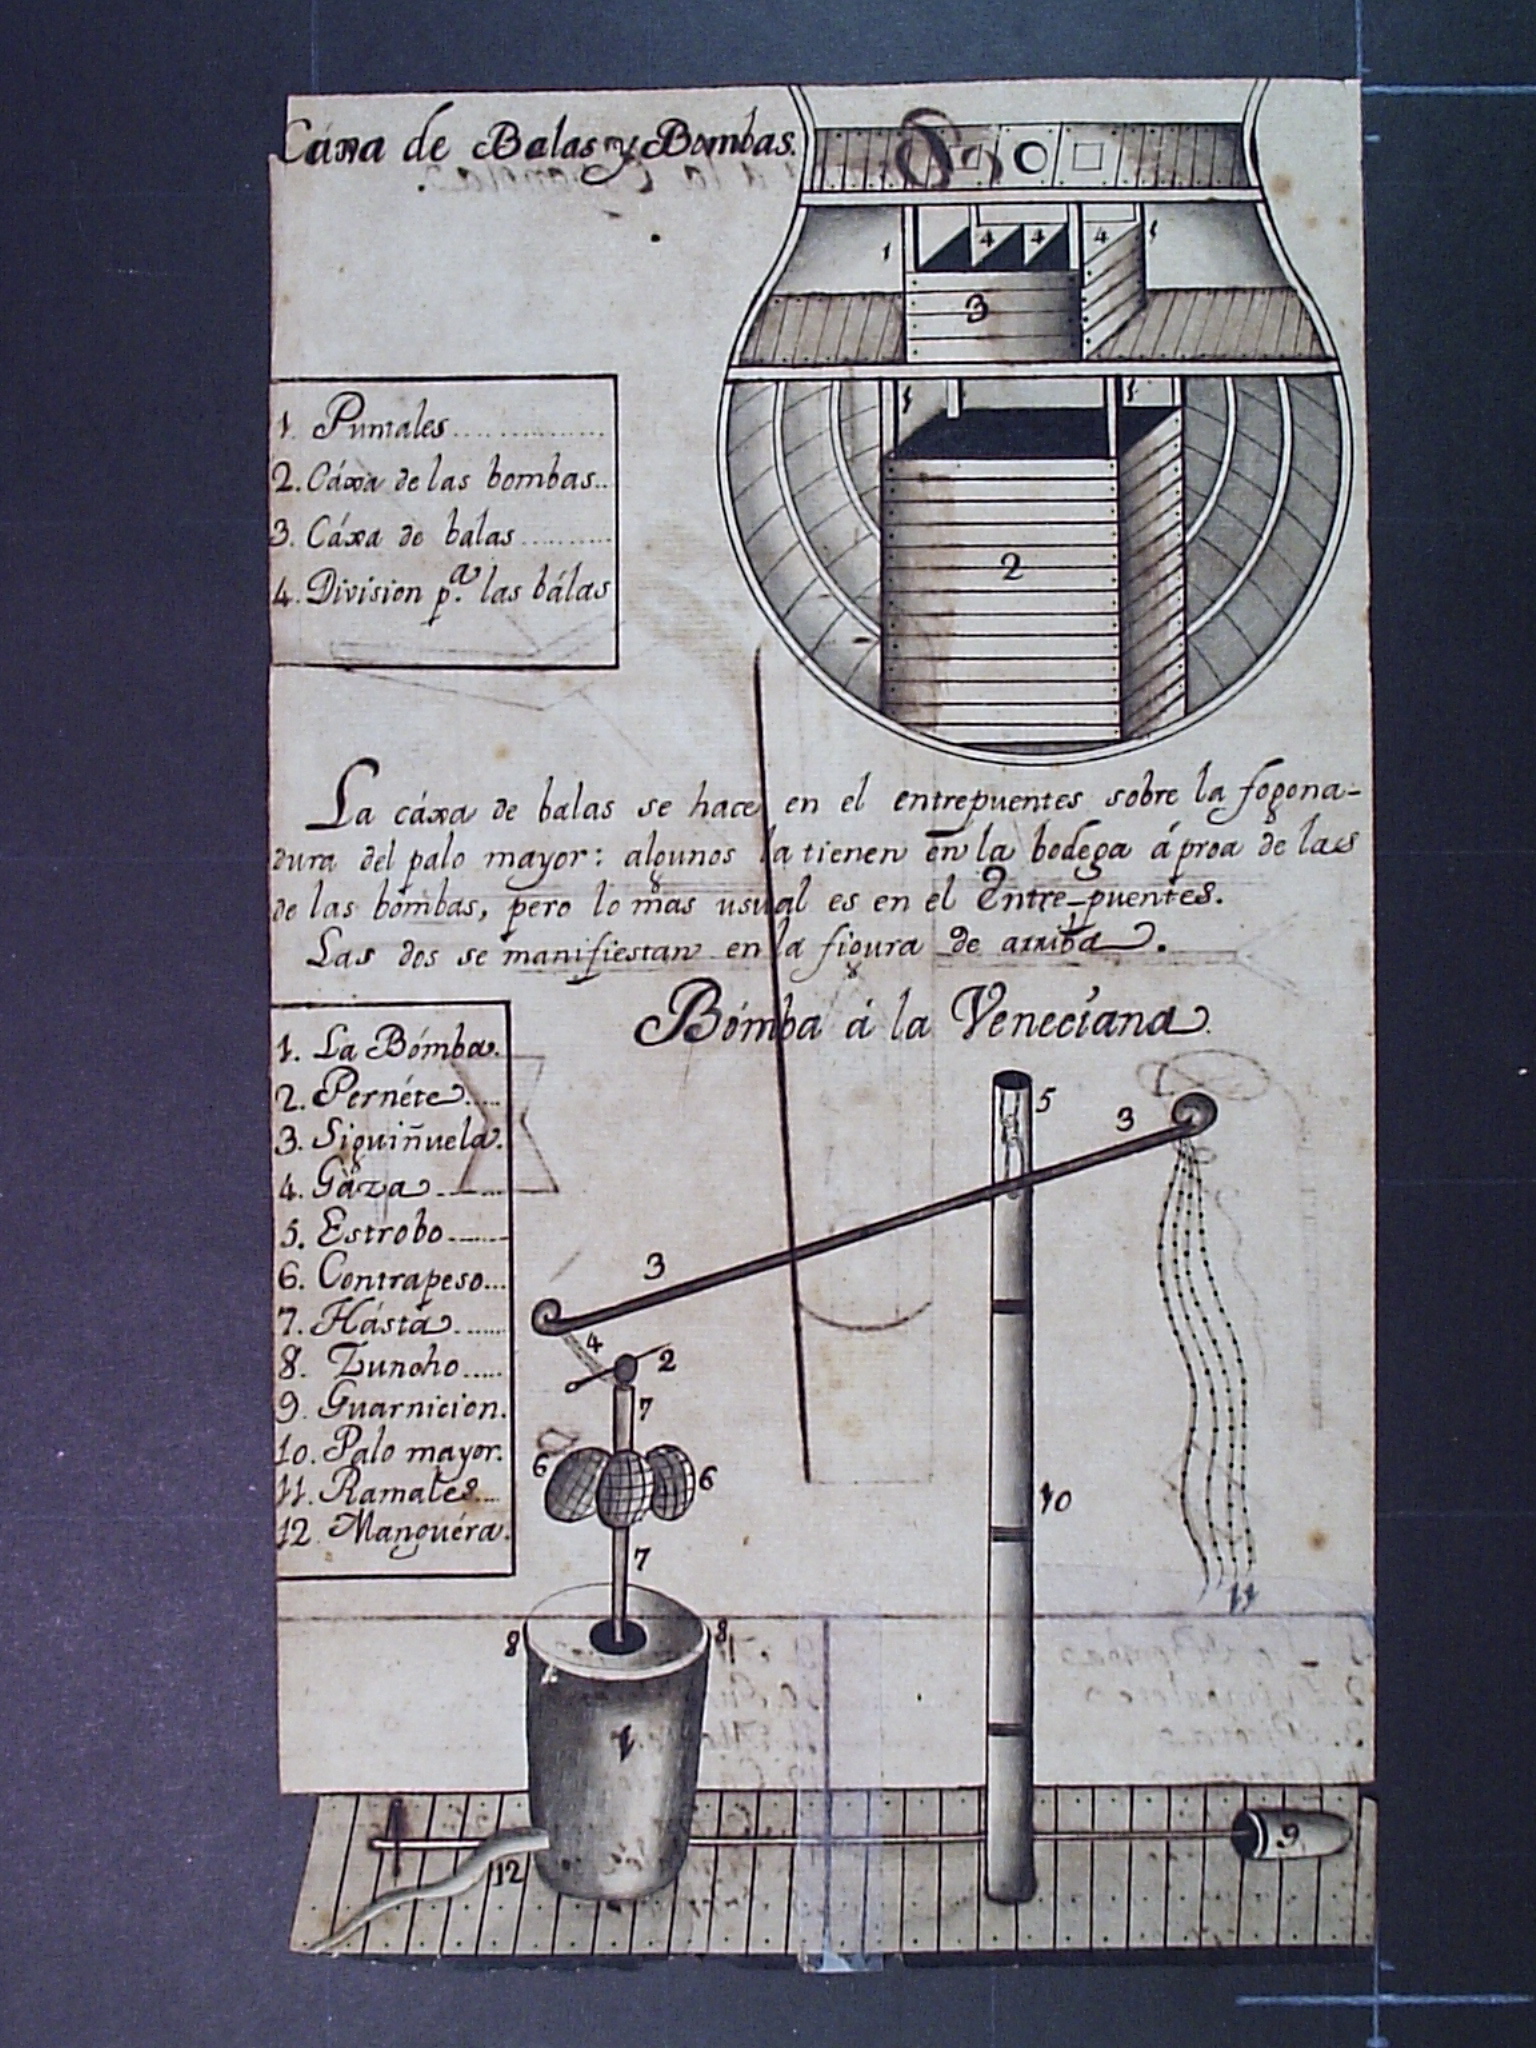 Cáxa de Balas y Bombas.
1 1
4 4 4
3
1 1
2
1. Puntales................
2. Cáxa de las bombas..
3. Cáxa de balas..........
4. Division p.ª las bálas
La cáxa de balas se hace en el entrepuentes sobre la fogona-
dura del palo mayor: algunos la tienen en la bodega á proa de las
de las bombas, pero lo mas usual es en el Entre-puentes.
Las dos se manifiestan en la figura de arriba.
Bómba á la Veneciana.
1. La Bómba.
2. Pernéte.....
3. Siguiñuela.
4. Gáza.......
5. Estrobo.......
6. Contrapeso...
7. Hásta.......
8. Zuncho.....
9. Guarnicion.
10. Palo mayor.
11. Ramales....
12. Manguéra.
5
3
3
4
2
7
6 6
10
7
11
8 8
1
9
12